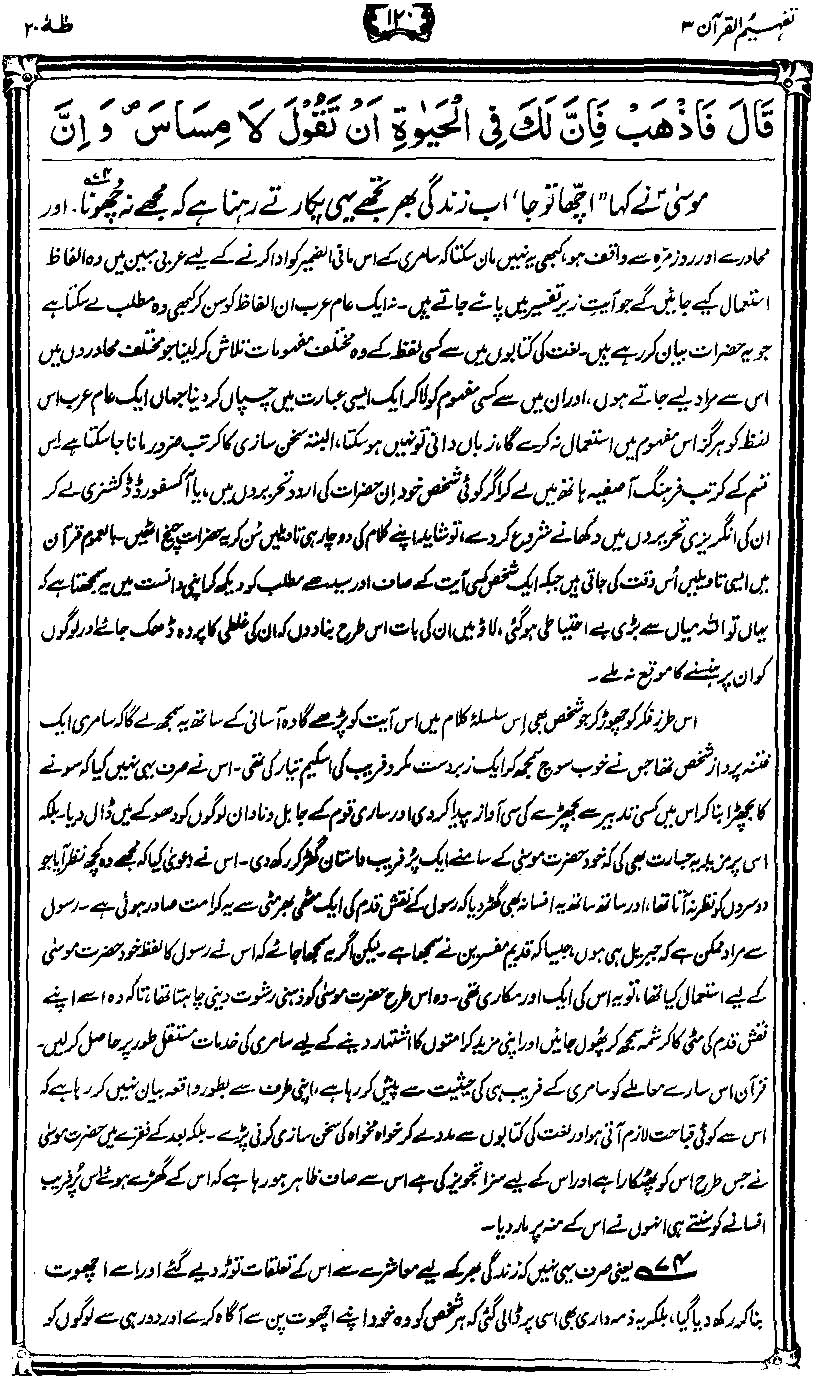 تفہیم القرآن ۳
۱۲۰
طٰہٰ ۲۰
قَالَ فَاذْهَبْ فَاِنَّ لَكَ فِی الْحَیٰوةِ اَنْ تَقُوْلَ لَا مِسَاسَ ۪ وَ اِنَّ
موسیٰؑ نے کہا "اچھا تو جا، اب زندگی بھر تجھے یہی پکارتے رہنا ہے کہ مجھے نہ چھونا۷۴۔ اور
محاورے اور روزمرّہ سے واقف ہو، کبھی یہ نہیں مان سکتا کہ سامری کے اس مافی الضمیر کو ادا کرنے کے لیے عربی مبین میں وہ الفاظ
استعمال کیے جائیں گے جو آیتِ زیرِ تفسیر میں پائے جاتے ہیں۔ نہ ایک عام عرب ان الفاظ کو سن کر کبھی وہ مطلب لے سکتا ہے
جو یہ حضرات بیان کر رہے ہیں۔ لغت کی کتابوں میں سے کسی لفظ کے وہ مختلف مفہومات تلاش کر لینا جو مختلف محاوروں میں
اس سے مراد لیے جاتے ہوں، اور ان میں سے کسی مفہوم کو لا کر ایک ایسی عبارت میں چسپاں کر دینا جہاں ایک عام عرب اس
لفظ کو ہرگز اس مفہوم میں استعمال نہ کرے گا، زباں دانی تو نہیں ہو سکتا، البتہ سخن سازی کا کرتب ضرور مانا جا سکتا ہے۔ اِس
قسم کے کرتب فرہنگ آصفیہ ہاتھ میں لے کر اگر کوئی شخص خود اِن حضرات کی اردو تحریروں میں، یا آکسفورڈ ڈکشنری لے کر
ان کی انگریزی تحریروں میں دکھانے شروع کر دے، تو شاید اپنے کلام کی دو چار ہی تاویلیں سُن کر یہ حضرات چیخ اٹھیں۔ بالعموم قرآن
میں ایسی تاویلیں اُس وقت کی جاتی ہیں جبکہ ایک شخص کسی آیت کے صاف اور سیدھے مطلب کو دیکھ کر اپنی دانست میں یہ سمجھتا ہے کہ
یہاں تو اللہ میاں سے بڑی بے احتیاطی ہو گئی، لاؤ میں ان کی بات اس طرح بنا دوں کہ ان کی غلطی کا پردہ ڈھک جائے اور لوگوں
کو ان پر ہنسنے کا موقع نہ ملے۔
اس طرزِ فکر کو چھوڑ کر جو شخص بھی اِس سلسلۂ کلام میں اس آیت کو پڑھے گا وہ آسانی کے ساتھ یہ سمجھ لے گا کہ سامری ایک
فتنہ پرداز شخص تھا جس نے خوب سوچ سمجھ کر ایک زبردست مکر و فریب کی اسکیم تیار کی تھی۔ اس نے صرف یہی نہیں کیا کہ سونے
کا بچھڑا بنا کر اس میں کسی تدبیر سے بچھڑے کی سی آواز پیدا کر دی اور ساری قوم کے جاہل و نادان لوگوں کو دھوکے میں ڈال دیا۔ بلکہ
اس پر مزید یہ جسارت بھی کی کہ خود حضرت موسیٰ کے سامنے ایک پُر فریب داستان گھڑ کر رکھ دی۔ اس نے دعویٰ کیا کہ مجھے وہ کچھ نظر آیا جو
دوسروں کو نظر نہ آتا تھا، اور ساتھ ساتھ یہ افسانہ بھی گھڑ دیا کہ رسول کے نقش قدم کی ایک مٹھی بھر مٹی سے یہ کرامت صادر ہوئی ہے۔ رسول
سے مراد ممکن ہے کہ جبریل ہی ہوں، جیسا کہ قدیم مفسرین نے سمجھا ہے۔ لیکن اگر یہ سمجھا جائے کہ اس نے رسول کا لفظ خود حضرت موسیٰ
کے لیے استعمال کیا تھا، تو یہ اس کی ایک اور مکاری تھی۔ وہ اس طرح حضرت موسیٰ کو ذہنی رشوت دینی چاہتا تھا، تاکہ وہ اسے اپنے
نقش قدم کی مٹی کا کرشمہ سمجھ کر پھول جائیں اور اپنی مزید کرامتوں کا اشتہار دینے کے لیے سامری کی خدمات مستقل طور پر حاصل کر لیں۔
قرآن اس سارے معاملے کو سامری کے فریب ہی کی حیثیت سے پیش کر رہا ہے، اپنی طرف سے بطور واقعہ بیان نہیں کر رہا ہے کہ
اس سے کوئی قباحت لازم آتی ہو اور لغت کی کتابوں سے مدد لے کر خواہ مخواہ کی سخن سازی کرنی پڑے۔ بلکہ بعد کے فقرے میں حضرت موسیٰ
نے جس طرح اس کو پھٹکارا ہے اور اس کے لیے سزا تجویز کی ہے اس سے صاف ظاہر ہو رہا ہے کہ اس کے گھڑے ہوئے اس پُر فریب
افسانے کو سنتے ہی انہوں نے اس کے منہ پر مار دیا۔
۷۴ یعنی صرف یہی نہیں کہ زندگی بھر کے لیے معاشرے سے اس کے تعلقات توڑ دیے گئے اور اسے اچھوت
بنا کر رکھ دیا گیا، بلکہ یہ ذمہ داری بھی اسی پر ڈالی گئی کہ ہر شخص کو وہ خود اپنے اچھوت پن سے آگاہ کرے اور دور ہی سے لوگوں کو